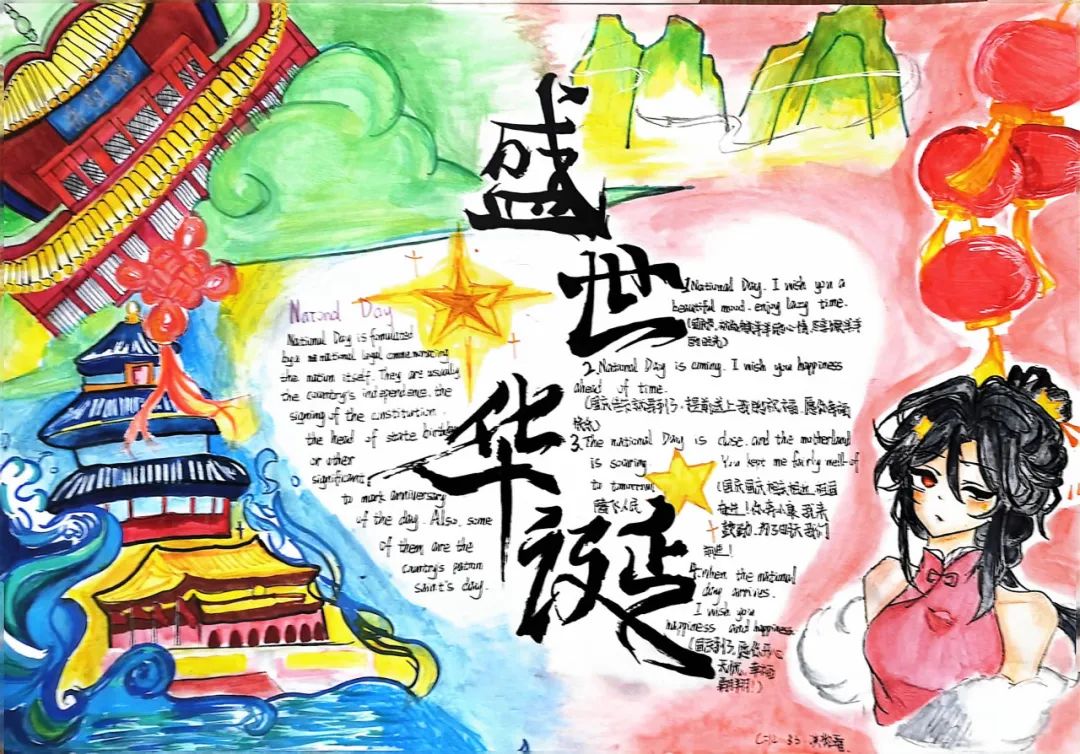 盛世华诞
National Day
National Day is formulated
by a national legal commemorating
the nation itself. They are usually
the country's independence. the
signing of the constitution.
the head of state birthday
or other
significant
to mark anniversary
of the day. Also, some
of them are the
country's patron
saint's day.
1 National Day. I wish you a
beautiful mood. enjoy lazy time.
2. National Day is coming. I wish you happiness
ahead of time.
(国庆就要到了, 提前送上我的祝福, 愿你幸福
3. The national Day is close. and the motherland
is soaring. You kept me fairly well-of
to tomorrow
(国庆国庆 祖国
奋进!
我们
前进!
4. When the national
day arrives.
I wish you
happiness and happiness
(国庆到了, 愿你开心
无忧, 幸福